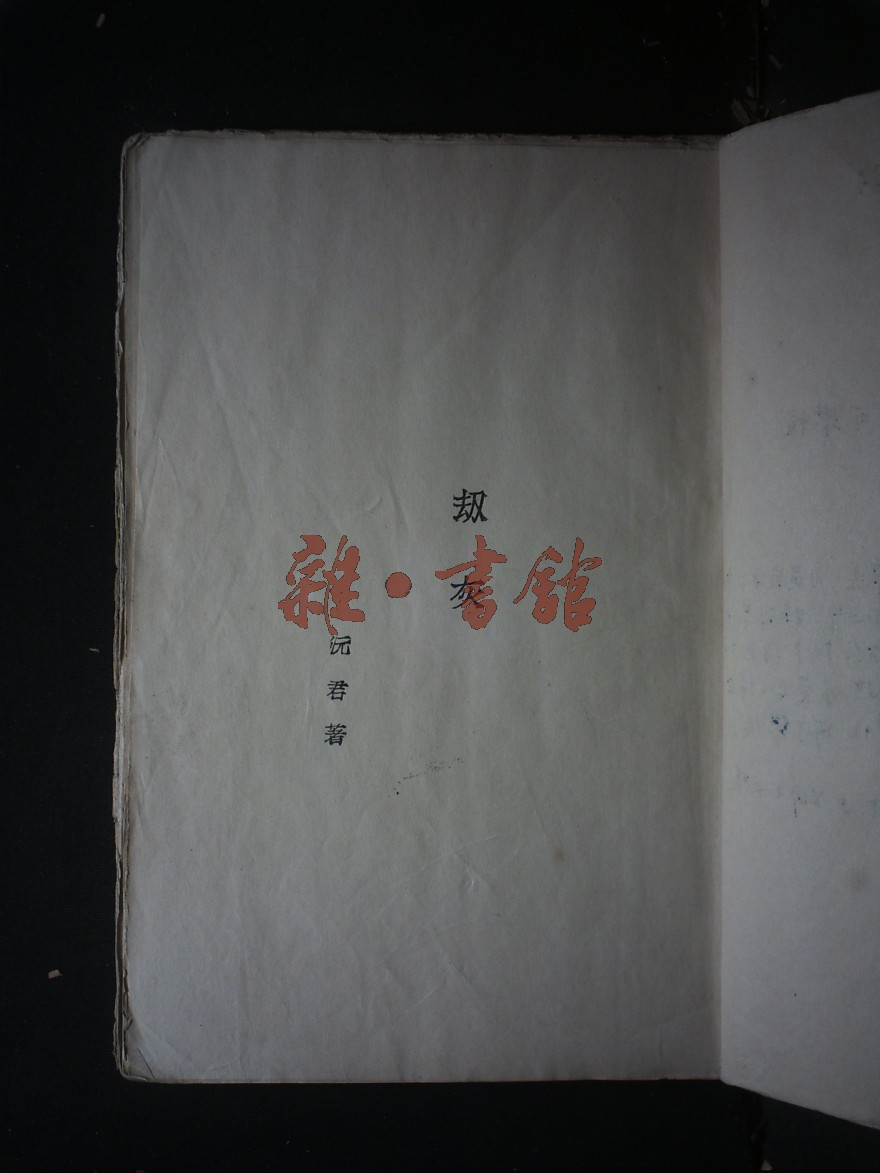 刼灰
沅君著
雜·書館